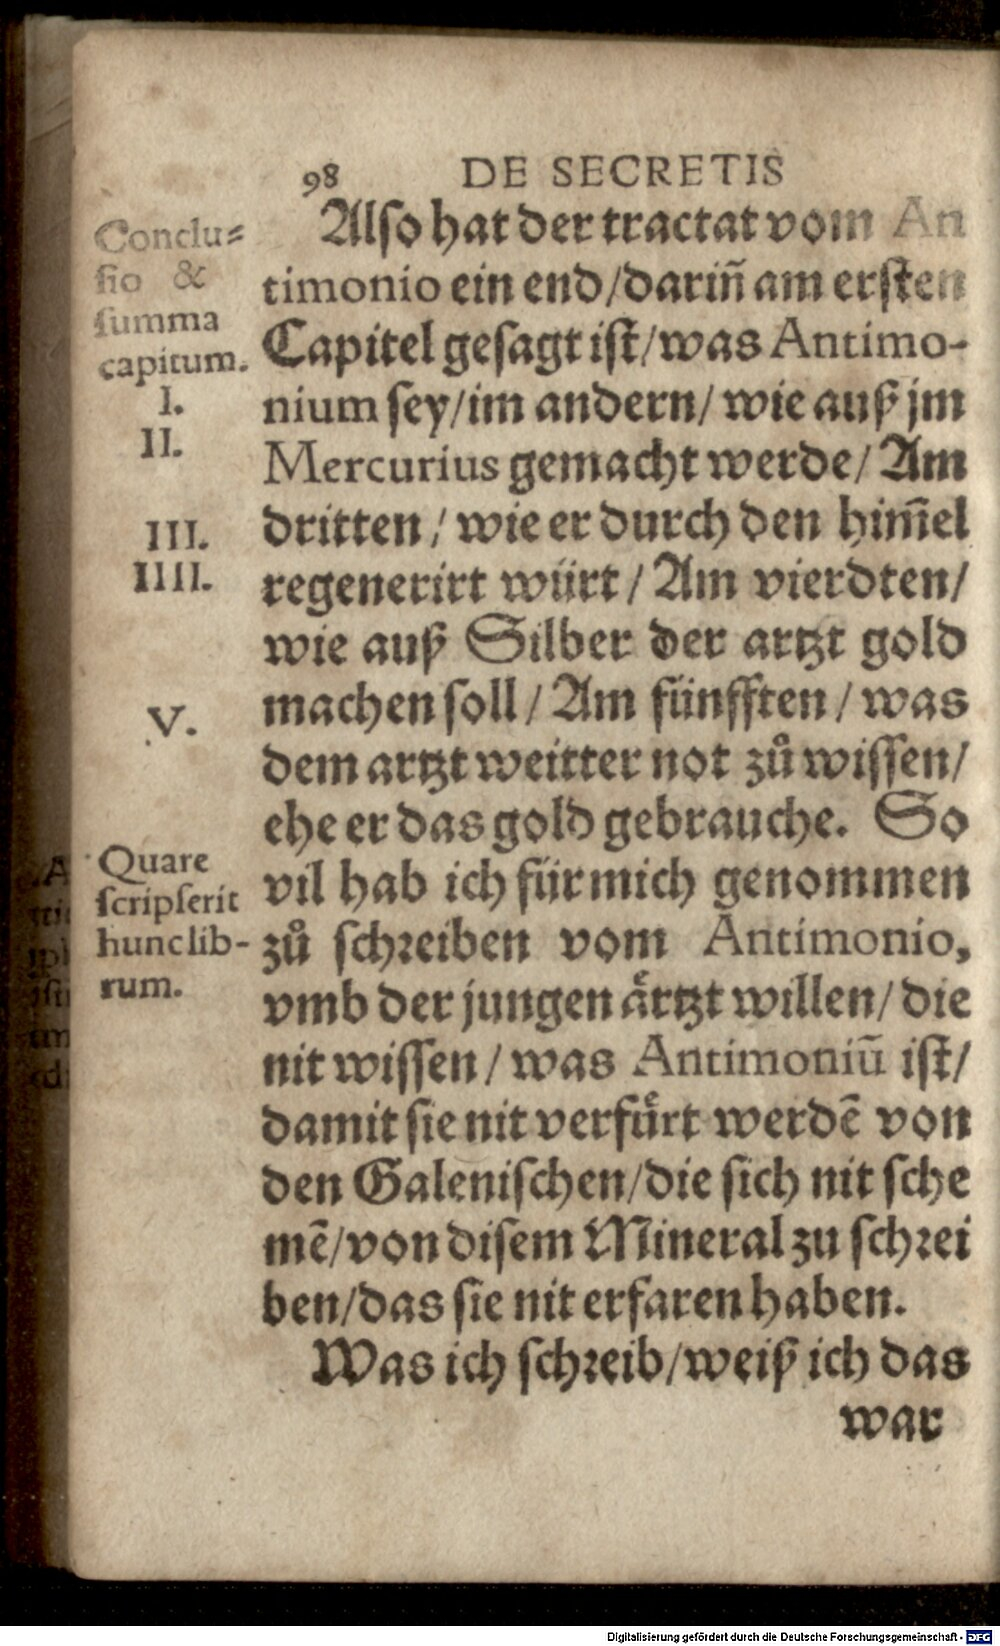 98 DE SECRETIS
Conclu⸗
ſio &
ſumma
capitum.
I.
II.
III.
IIII.
V.
Quare
ſcripſerit
hunc lib-
rum.
Alſo hat der tractat vom An
timonio ein end/darin̄ am erſten
Capitel geſagt iſt/was Antimo-
nium ſey/im andern/ wie auß jm
Mercurius gemacht werde/ Am
dritten/ wie er durch den him̄el
regenerirt würt/ Am vierdten/
wie auß Silber der artzt gold
machen ſoll/ Am fünfften/ was
dem artzt weitter not zů wiſſen/
ehe er das gold gebrauche. So
vil hab ich für mich genommen
zů ſchreiben vom Antimonio,
vmb der jungen aͤrtzt willen/ die
nit wiſſen/ was Antimoniū iſt/
damit ſie nit verfuͤrt werdē von
den Galeniſchen/die ſich nit ſche
mē/von diſem Mineral zu ſchrei
ben/das ſie nit erfaren haben.
Was ich ſchreib/weiß ich das
war
Digitalisierung gefördert durch die Deutsche Forschungsgemeinschaft - DFG